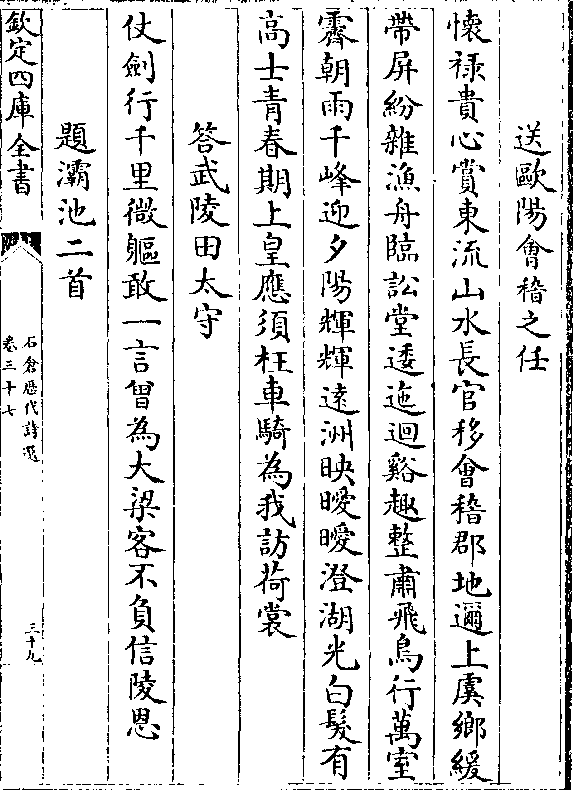 送歐陽會稽之任
懷祿貴心賞東流山水長官移會稽郡地邇上虞鄉緩
帶屏紛雜漁舟臨訟堂逶迤迴谿趣整肅飛鳥行萬室
霽朝雨千峰迎夕陽輝輝遠洲映曖曖澄湖光白髮有
高士青春期上皇應須枉車騎為我訪荷裳
答武陵田太守
仗劍行千里微軀敢一言曾為大梁客不負信陵恩
題灞池二首
欽定四庫全書
石倉歷代詩選
卷三十七
三十九